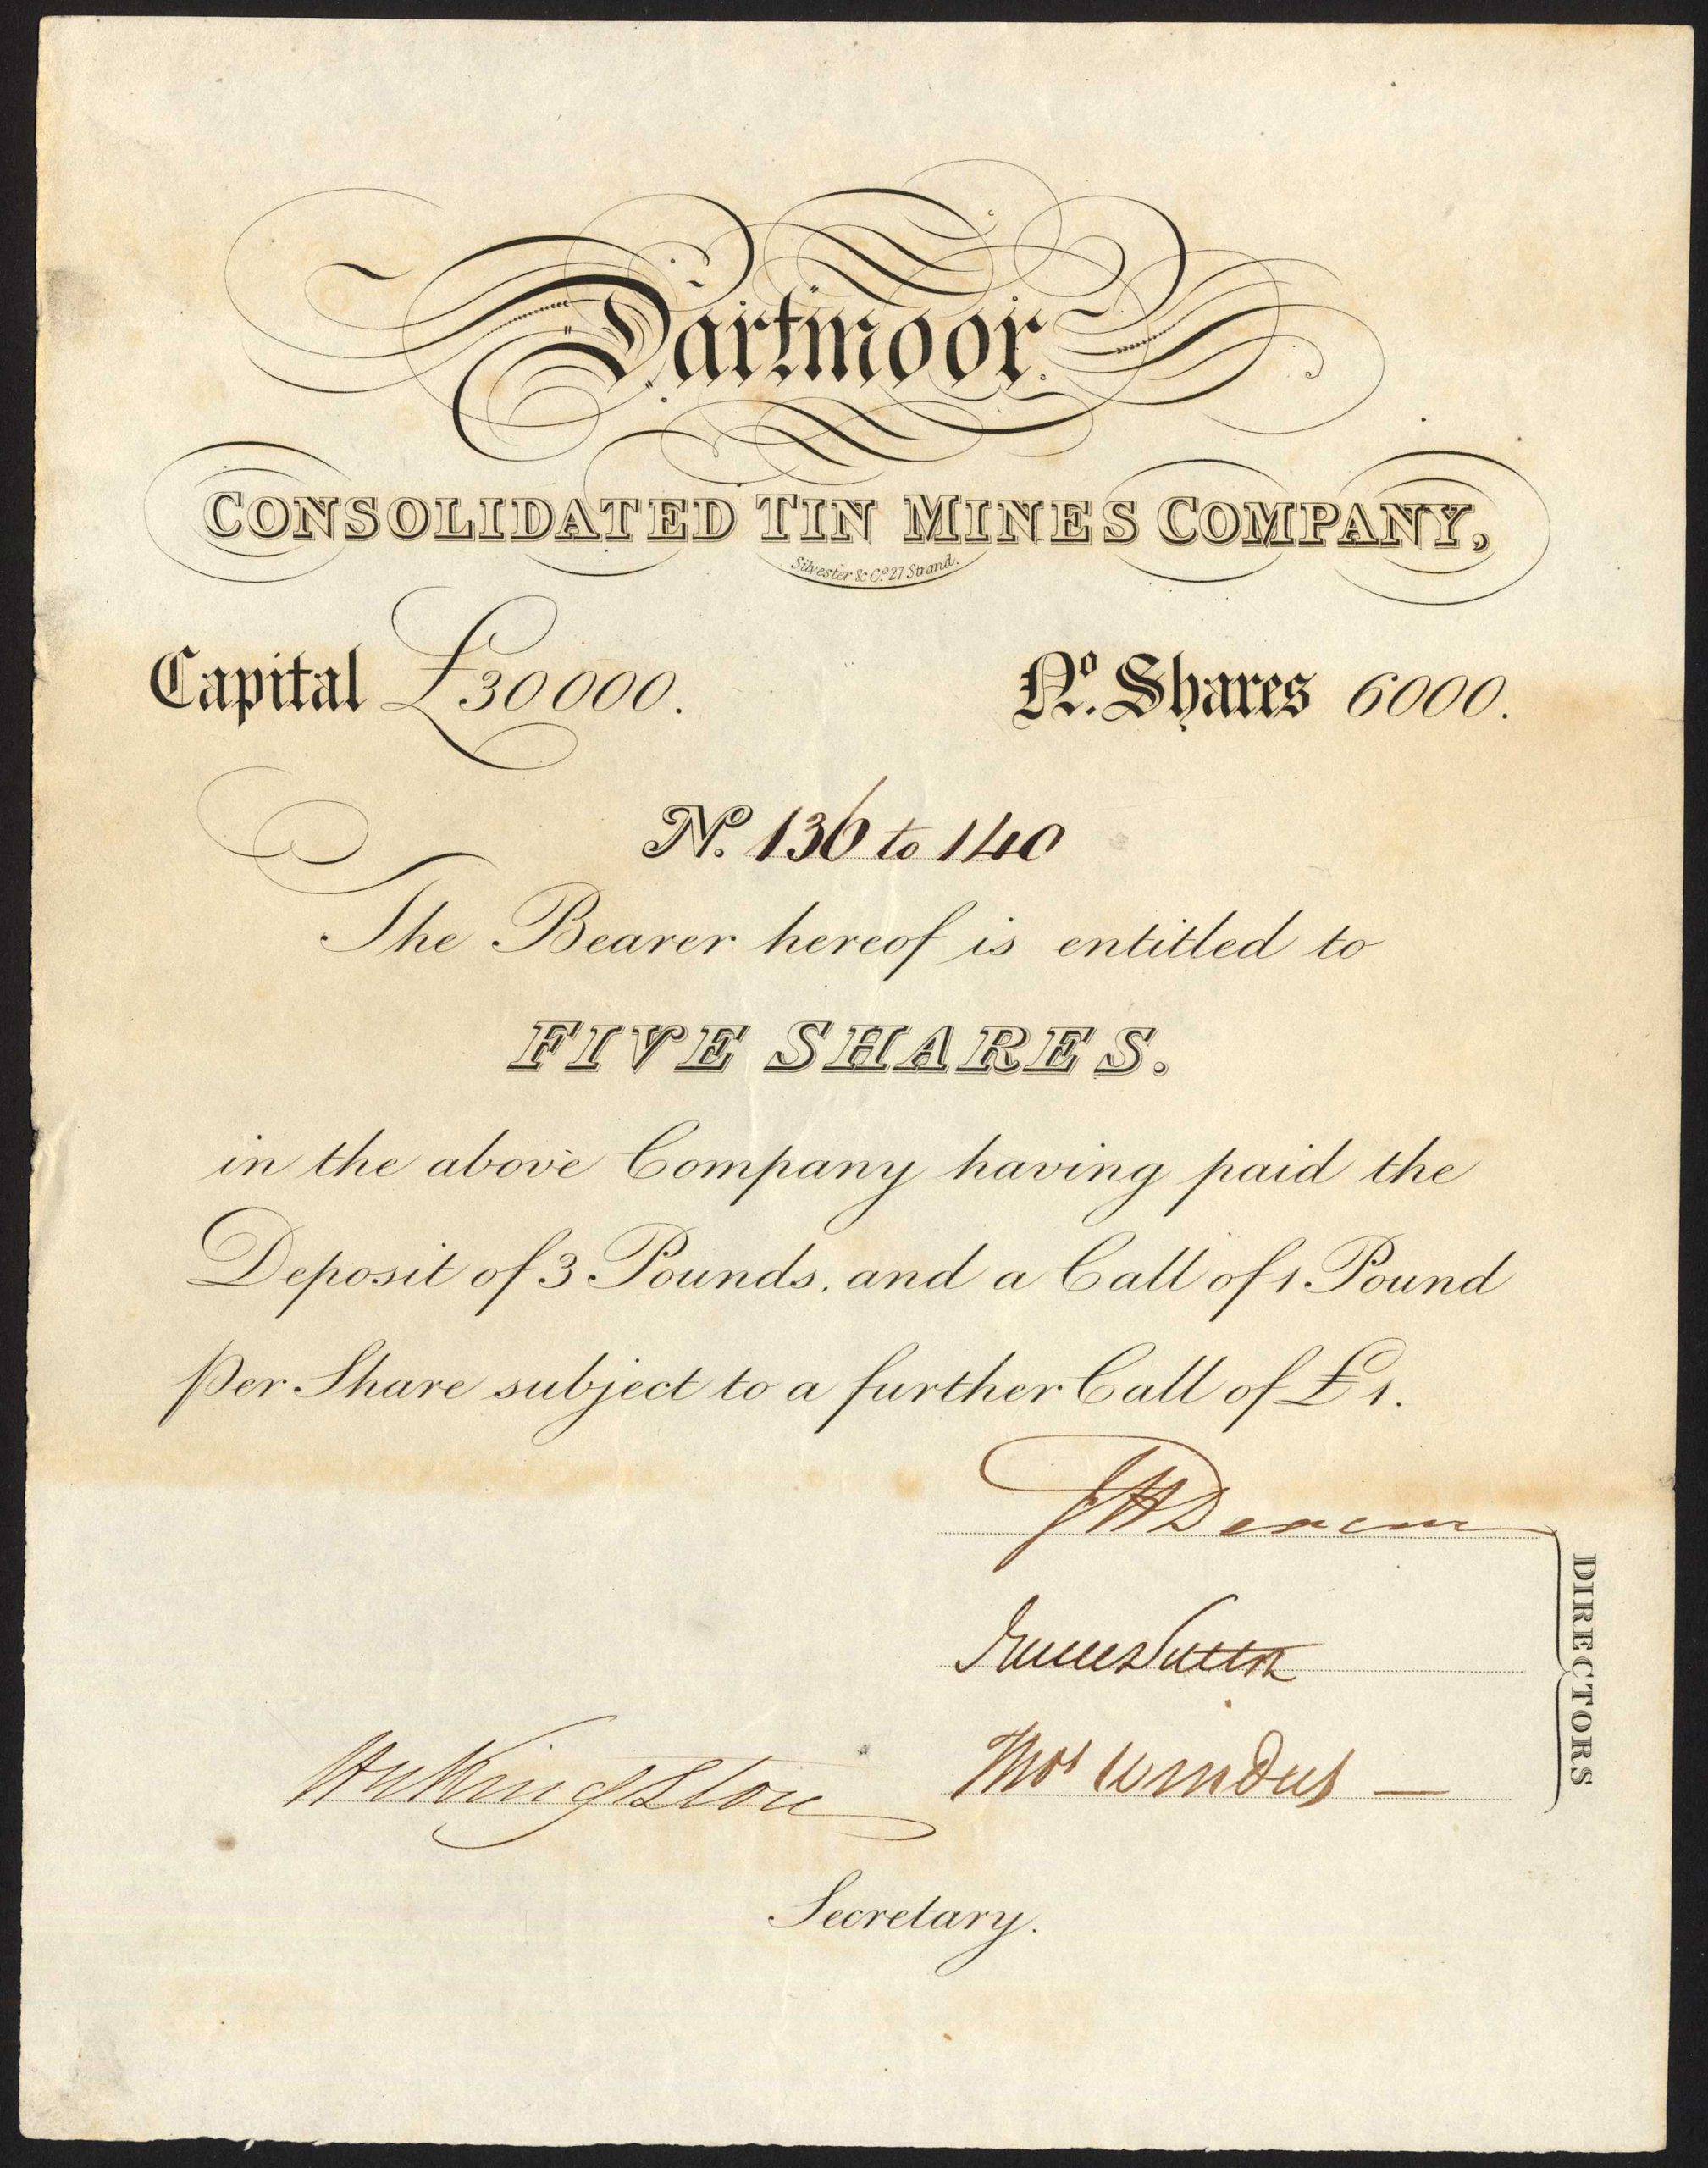 Dartmoor
CONSOLIDATED TIN MINES COMPANY,
Silvester & Co. 27 Strand.
Capital £30000.
No. Shares 6000.
No. 136 to 140
The Bearer hereof is entitled to
FIVE SHARES.
in the above Company having paid the
Deposit of 3 Pounds, and a Call of 1 Pound
per Share subject to a further Call of £1.
DIRECTORS
Thos Windus
Kingston
Secretary.